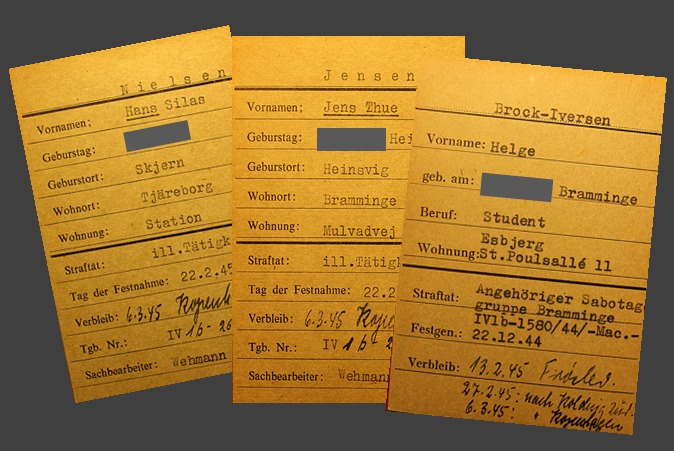 Nielsen
Vornamen: Hans Silas
Geburstag:
Geburstort: Skjern
Wohnort: Tjäreborg
Wohnung: Station
Straftat: ill.Tätigk
Tag der Festnahme: 22.2.45
Verbleib: 6.3.45 Kopenh
Tgb. Nr.: IV 1b - 26
Sachbearbeiter: Wehmann
Jensen
Vornamen: Jens Thue
Geburstag: Hei
Geburstort: Heinsvig
Wohnort: Bramminge
Wohnung: Mulvadvej
Straftat: ill.Tätigk
Tag der Festnahme: 22.2
Verbleib: 6.3.45 Kope
Tgb. Nr.: IV 1b - 2
Sachbearbeiter: Wehmann
Brock-Iversen
Vorname: Helge
geb. am: Bramminge
Beruf: Student
Esbjerg
Wohnung: St.Poulsallé 11
Straftat: Angehöriger Sabotag
gruppe Bramminge
IV1b-1580/44/-Mac.-
Festgen.: 22.12.44
Verbleib: 13.2.45 Frøslev.
27.2.45: nach Kolding zur.
6.3.45: " Kopenhagen